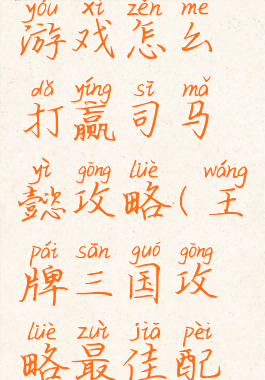 yóu xì zěn me
游戏怎么
dǎ yíng sī mǎ
打赢司马
yì gōng lüè wáng
懿攻略(王
pái sān guó gōng
牌三国攻
lüè zuì jiā pèi
略最佳配